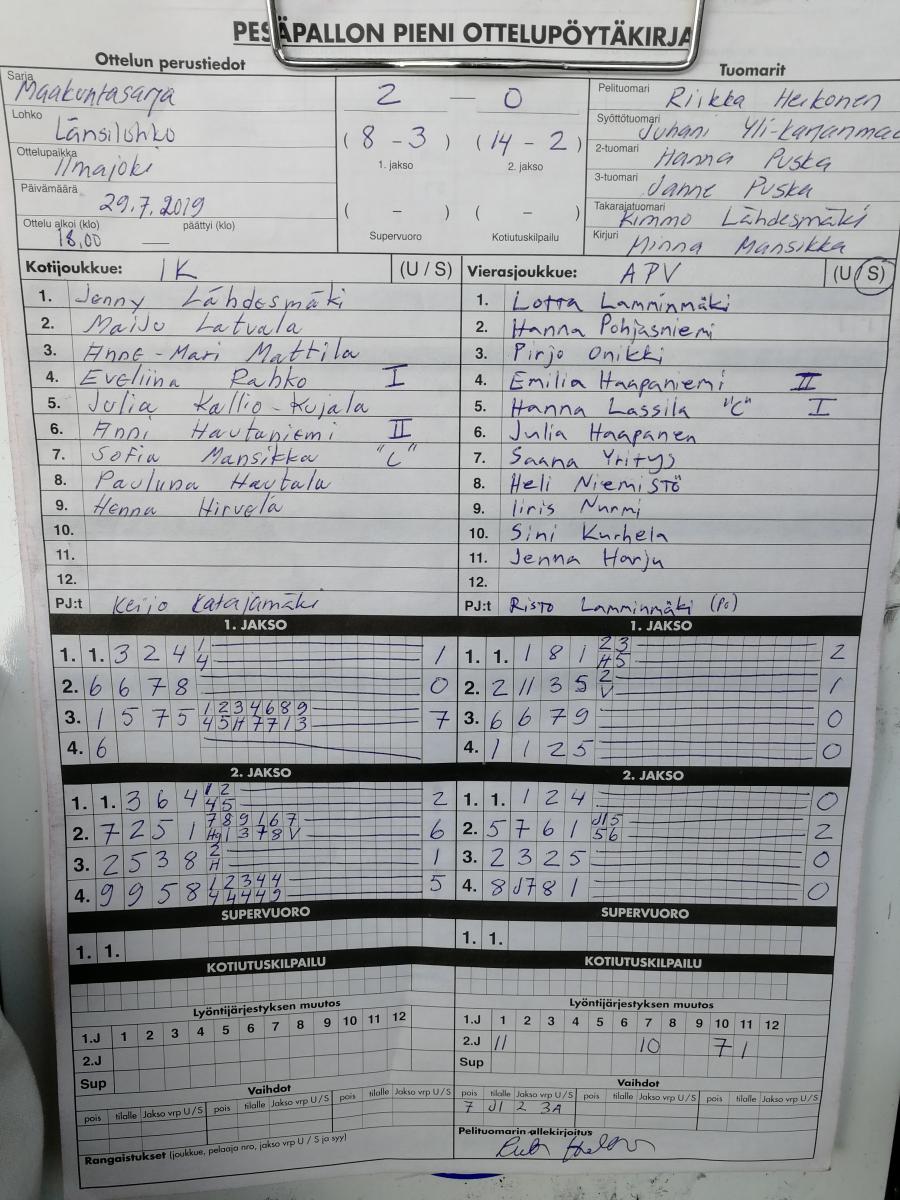 PESÄPALLON PIENI OTTELUPÖYTÄKIRJA
Ottelun perustiedot
Tuomarit
Sarja Maakuntasarja
Lohko Länsilohko
Ottelupaikka Ilmajoki
Päivämäärä 29.7.2019
Ottelu alkoi (klo) 18,00 päättyi (klo) —
2 — 0
( 8 - 3 ) ( 14 - 2 )
1. jakso 2. jakso
( - ) ( - )
Supervuoro Kotiutuskilpailu
Pelituomari Riikka Heikonen
Syöttötuomari Juhani
2-tuomari Hanna Puska
3-tuomari Janne Puska
Takarajatuomari Kimmo Lähdesmäki
Kirjuri Minna Mansikka
Kotijoukkue: IK (U / S)
1. Jenny Lähdesmäki
2. Maiju Latvala
3. Anne-Mari Mattila
4. Eveliina Rahko I
5. Julia Kallio-Kujala
6. Anni Hautaniemi II
7. Sofia Mansikka "C"
8. Pauliina Hautala
9. Henna Hirvelä
10.
11.
12.
PJ:t Keijo Katajamäki
Vierasjoukkue: APV (U / S)
1. Lotta Lamminmäki
2. Hanna Pohjasniemi
3. Pirjo Onikki
4. Emilia Haapaniemi II
5. Hanna Lassila "C" I
6. Julia Haapanen
7. Saana Yritys
8. Heli Niemistö
9. Iiris Nurmi
10. Sini Kurhela
11. Jenna Harju
12.
PJ:t Risto Lamminmäki (Po)
1. JAKSO
1. 1. 3 2 4 1 1
4
2. 6 6 7 8 0
3. 1 5 7 5 1 2 3 4 6 8 9 7
4 5 H 7 7 1 3
4. 6
1. JAKSO
1. 1. 1 8 1 2 3 2
H 5
2. 2 11 3 5 2 1
V
3. 6 6 7 9 0
4. 1 1 2 5 0
2. JAKSO
1. 1. 3 6 4 1 2 2
4 5
2. 7 2 5 1 7 8 9 1 6 7 6
H9 1 3 7 8 V
3. 2 5 3 8 2 1
H
4. 9 9 5 8 1 2 3 4 4 5
4 4 4 4 9
2. JAKSO
1. 1. 1 2 4 0
2. 5 7 6 1 J1 5 2
5 6
3. 2 3 2 5 0
4. 8 J7 8 1 0
SUPERVUORO
1. 1.
SUPERVUORO
1. 1.
KOTIUTUSKILPAILU
KOTIUTUSKILPAILU
Lyöntijärjestyksen muutos
1.J 1 2 3 4 5 6 7 8 9 10 11 12
2.J
Sup
Lyöntijärjestyksen muutos
1.J 1 2 3 4 5 6 7 8 9 10 11 12
2.J 11 10 7 1
Sup
Vaihdot
pois tilalle Jakso vrp U / S pois tilalle Jakso vrp U / S pois tilalle Jakso vrp U / S
Vaihdot
pois tilalle Jakso vrp U / S pois tilalle Jakso vrp U / S pois tilalle Jakso vrp U / S
7 J1 2 3A
Rangaistukset (joukkue, pelaaja nro, jakso vrp U / S ja syy)
Pelituomarin allekirjoitus